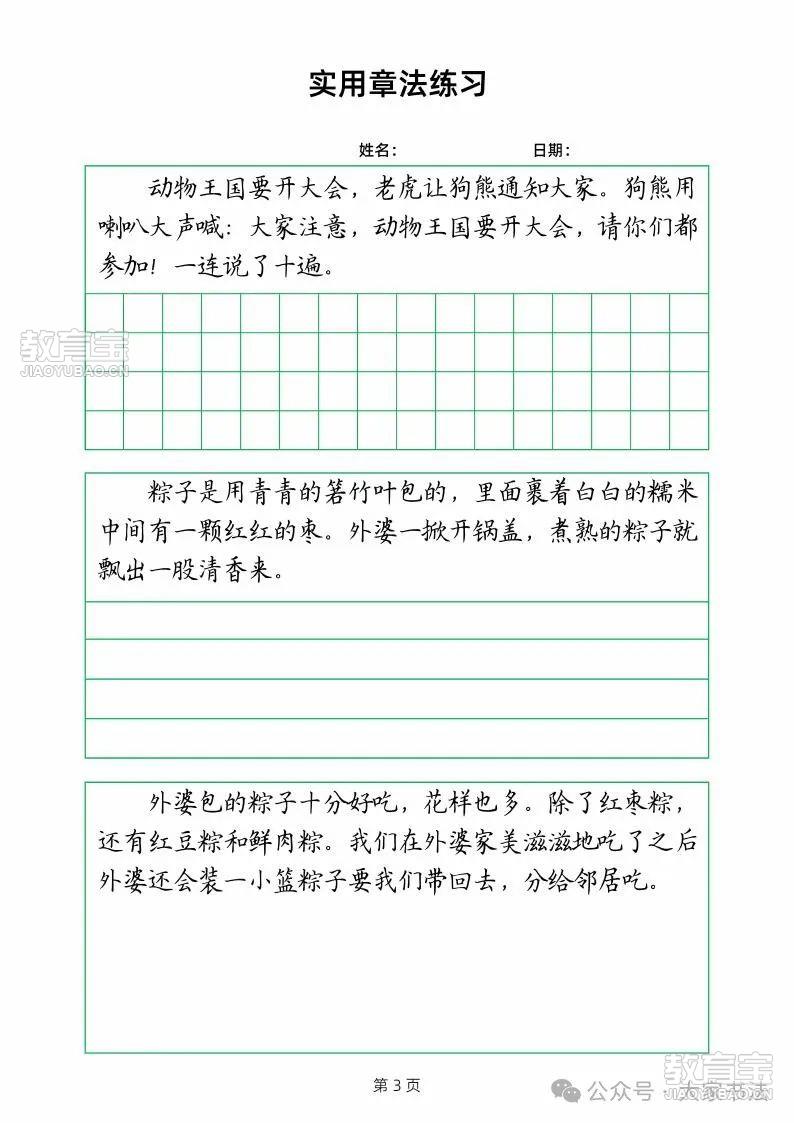 实用章法练习
姓名：
日期：
动物王国要开大会，老虎让狗熊通知大家。狗熊用
喇叭大声喊：大家注意，动物王国要开大会，请你们都
参加！一连说了十遍。
教育宝
JIAOYUBAO.CN
粽子是用青青的箬竹叶包的，里面裹着白白的糯米
中间有一颗红红的枣。外婆一掀开锅盖，煮熟的粽子就
飘出一股清香来。
外婆包的粽子十分好吃，花样也多。除了红枣粽，
还有红豆粽和鲜肉粽。我们在外婆家美滋滋地吃了之后
外婆还会装一小篮粽子要我们带回去，分给邻居吃。
第 3 页
教育宝
JIAOYUBAO.CN
公众号 · 大家书法